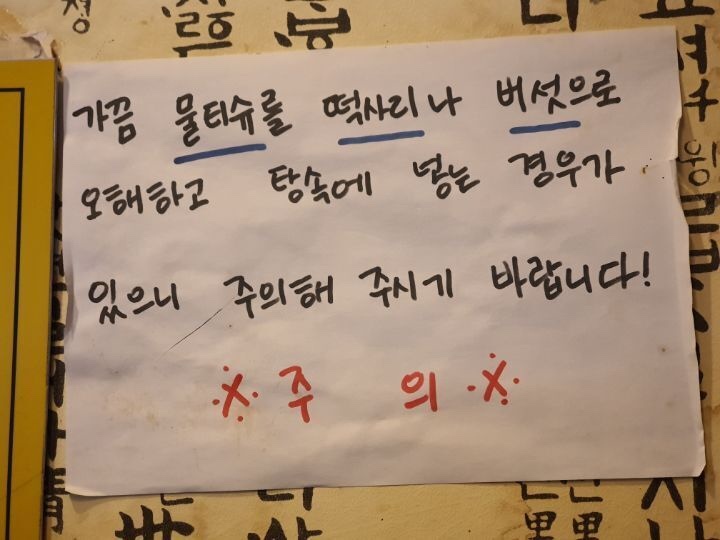 가끔 물티슈를 떡사리나 버섯으로
오해하고 탕속에 넣는 경우가
있으니 주의해 주시기 바랍니다!
※ 주 의 ※